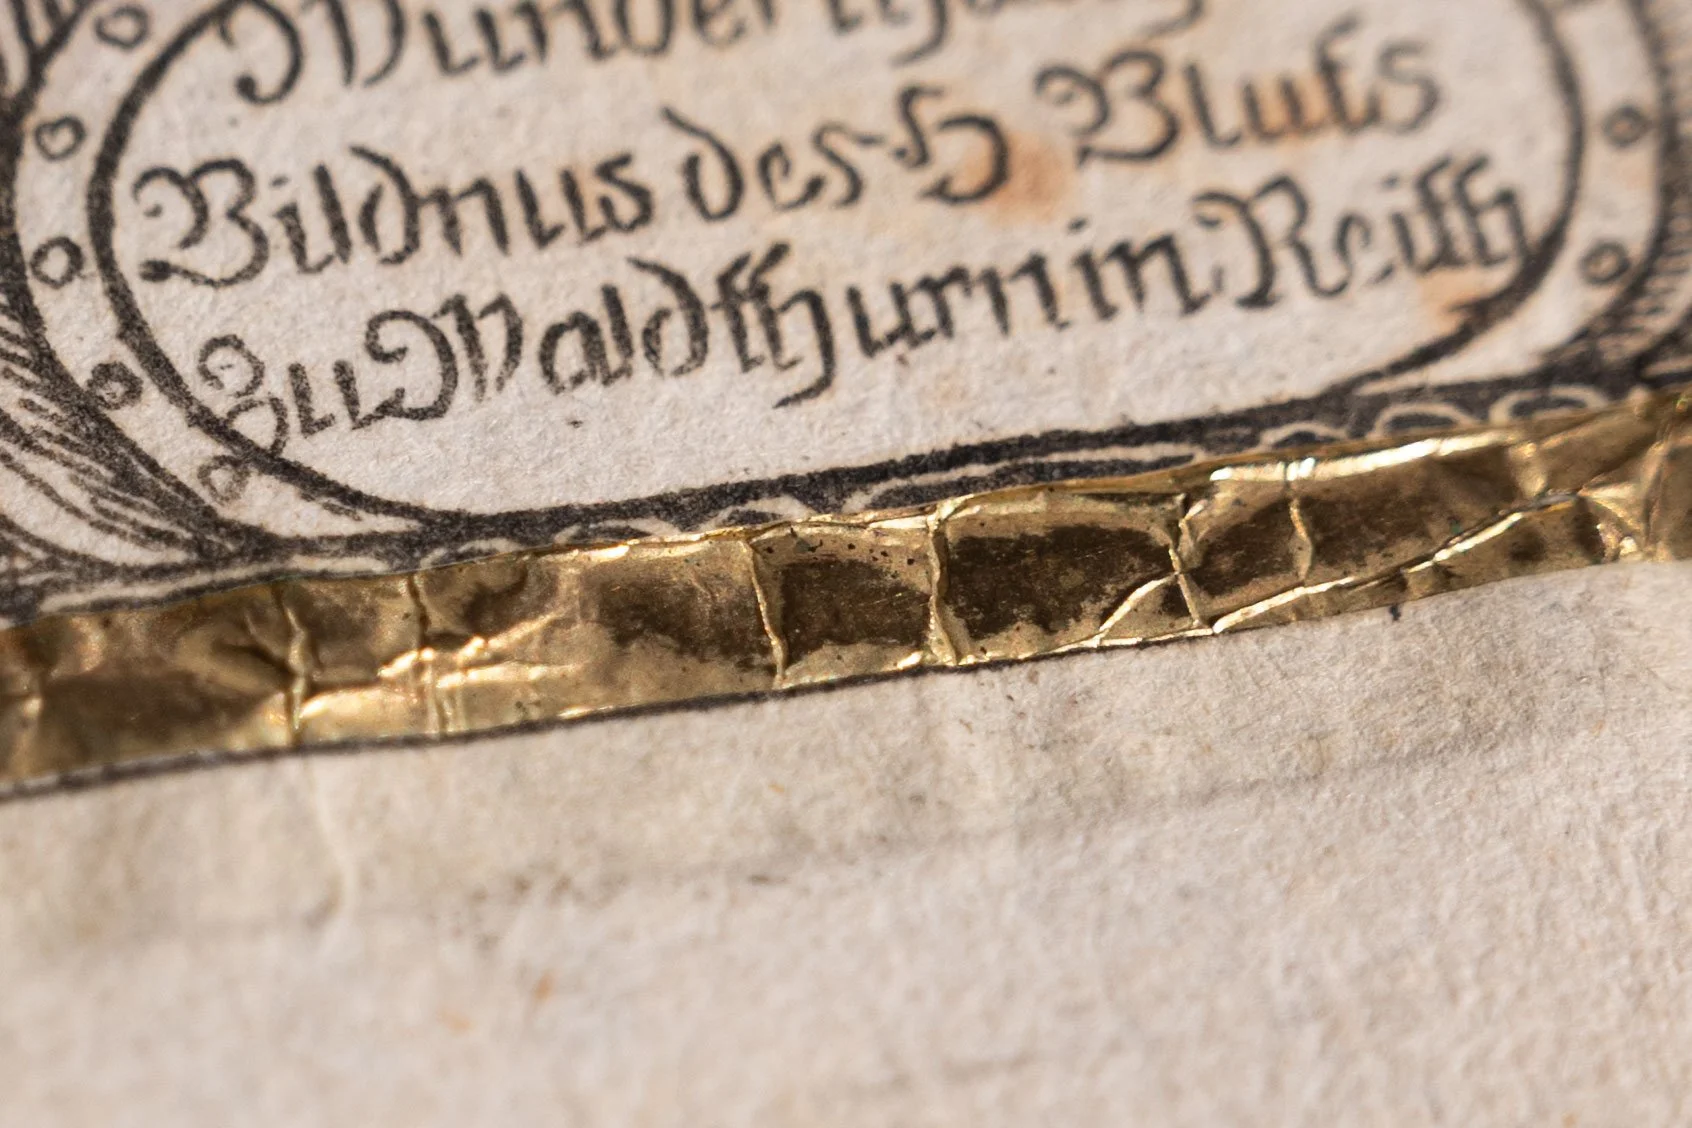 Wunderthätig
Bildnus des H Bluts
Zu Waldthurn in Reich